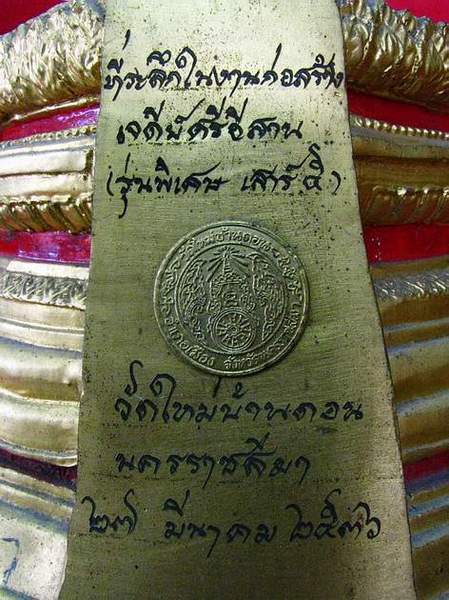 ที่ระลึกในงานก่อสร้าง
เจดีย์ศรีอีสาน
(รุ่นพิเศษ เสาร์ ๕)
วัดใหม่บ้านดอน
นครราชสีมา
๒๗ มีนาคม ๒๕๓๖